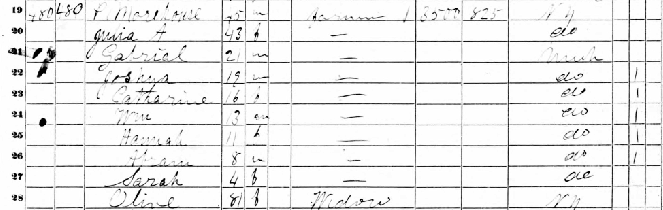 19 480 480 P. Morehouse 45 m Farmer 1 3500 825 NY
20 Julia A 43 f — do
21 Gabriel 21 m — Mich
22 Joshua 19 m — do 1
23 Catharine 16 f — do 1
24 Wm 13 m — do 1
25 Hannah 11 f — do 1
26 Abram 8 m — do 1
27 Sarah 4 f — do
28 Olive 81 f Widow NY